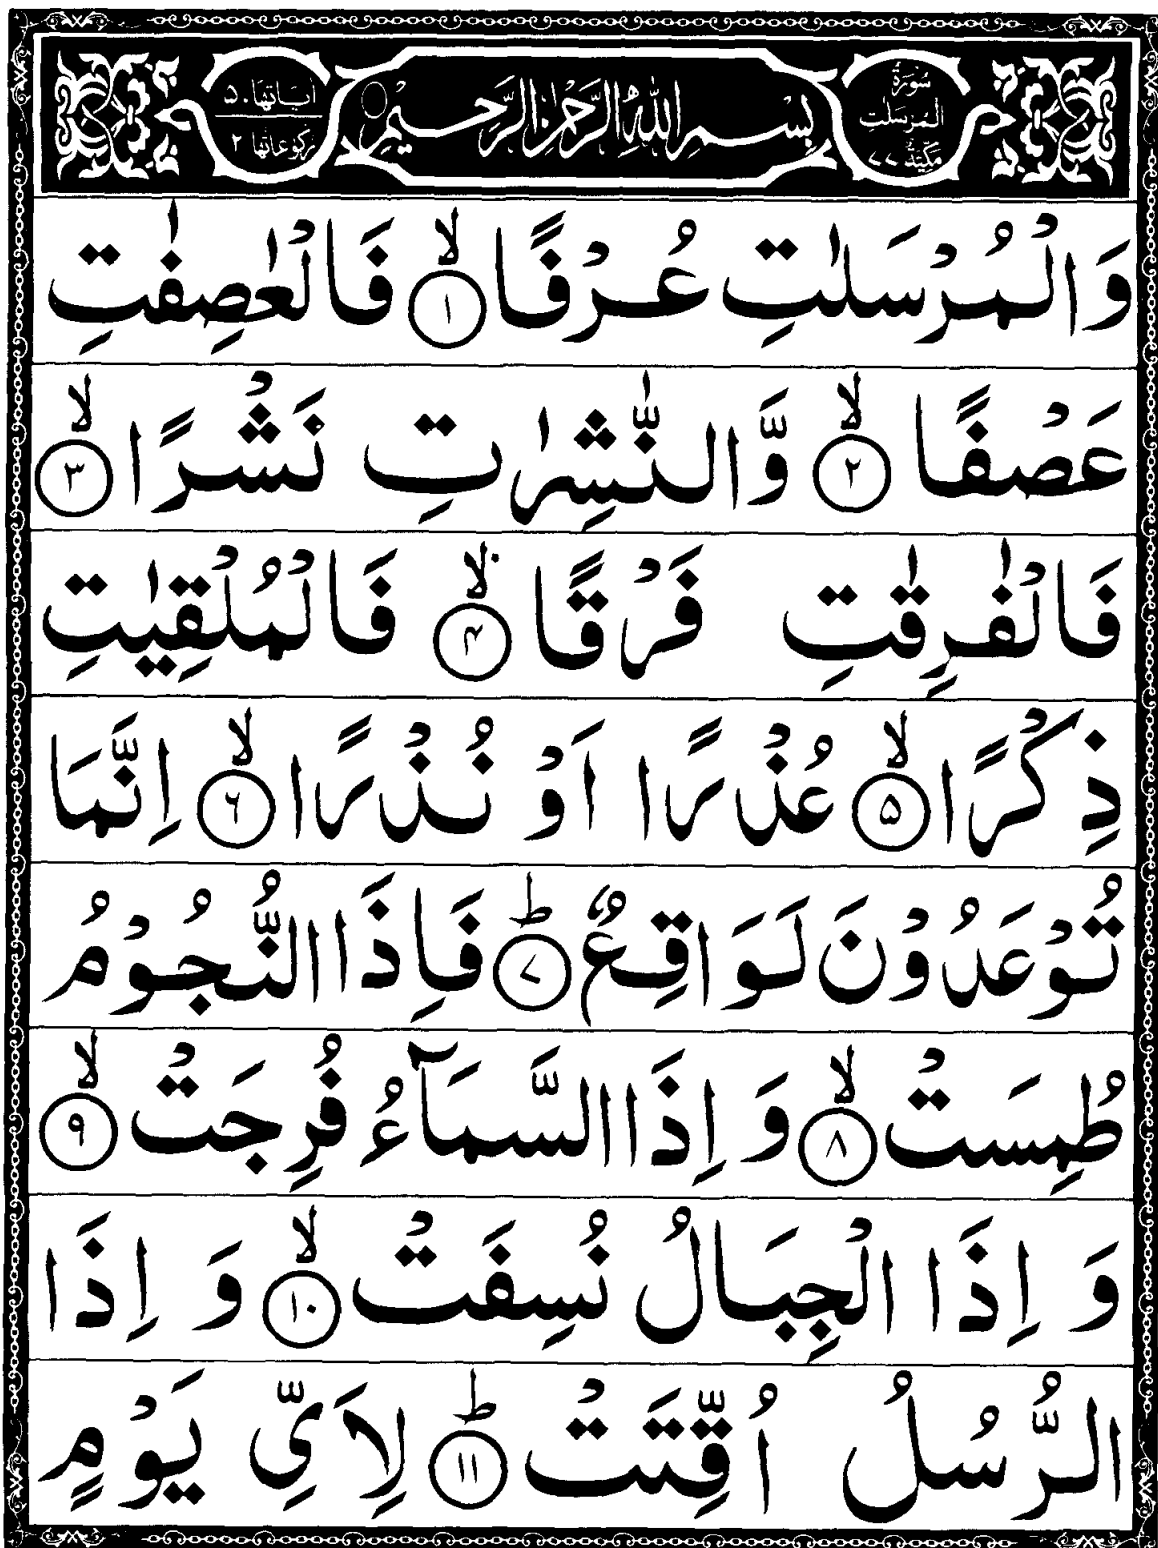 سُوْرَةُ
الْمُرْسَلٰتِ
مَكِّيَّةٌ ٧٧
بِسْمِ اللّٰهِ الرَّحْمٰنِ الرَّحِيْمِ
اٰيَاتُهَا ٥٠
رُكُوْعَاتُهَا ٢
وَالْمُرْسَلٰتِ عُرْفًا ۙ﴿١﴾ فَالْعٰصِفٰتِ
عَصْفًا ۙ﴿٢﴾ وَّالنّٰشِرٰتِ نَشْرًا ۙ﴿٣﴾
فَالْفٰرِقٰتِ فَرْقًا ۙ﴿۴﴾ فَالْمُلْقِيٰتِ
ذِكْرًا ۙ﴿۵﴾ عُذْرًا اَوْ نُذْرًا ۙ﴿۶﴾ اِنَّمَا
تُوْعَدُوْنَ لَوَاقِعٌ ؕ﴿٧﴾ فَاِذَا النُّجُوْمُ
طُمِسَتْ ۙ﴿٨﴾ وَ اِذَا السَّمَآءُ فُرِجَتْ ۙ﴿٩﴾
وَ اِذَا الْجِبَالُ نُسِفَتْ ۙ﴿١٠﴾ وَ اِذَا
الرُّسُلُ اُقِّتَتْ ؕ﴿١١﴾ لِاَيِّ يَوْمٍ